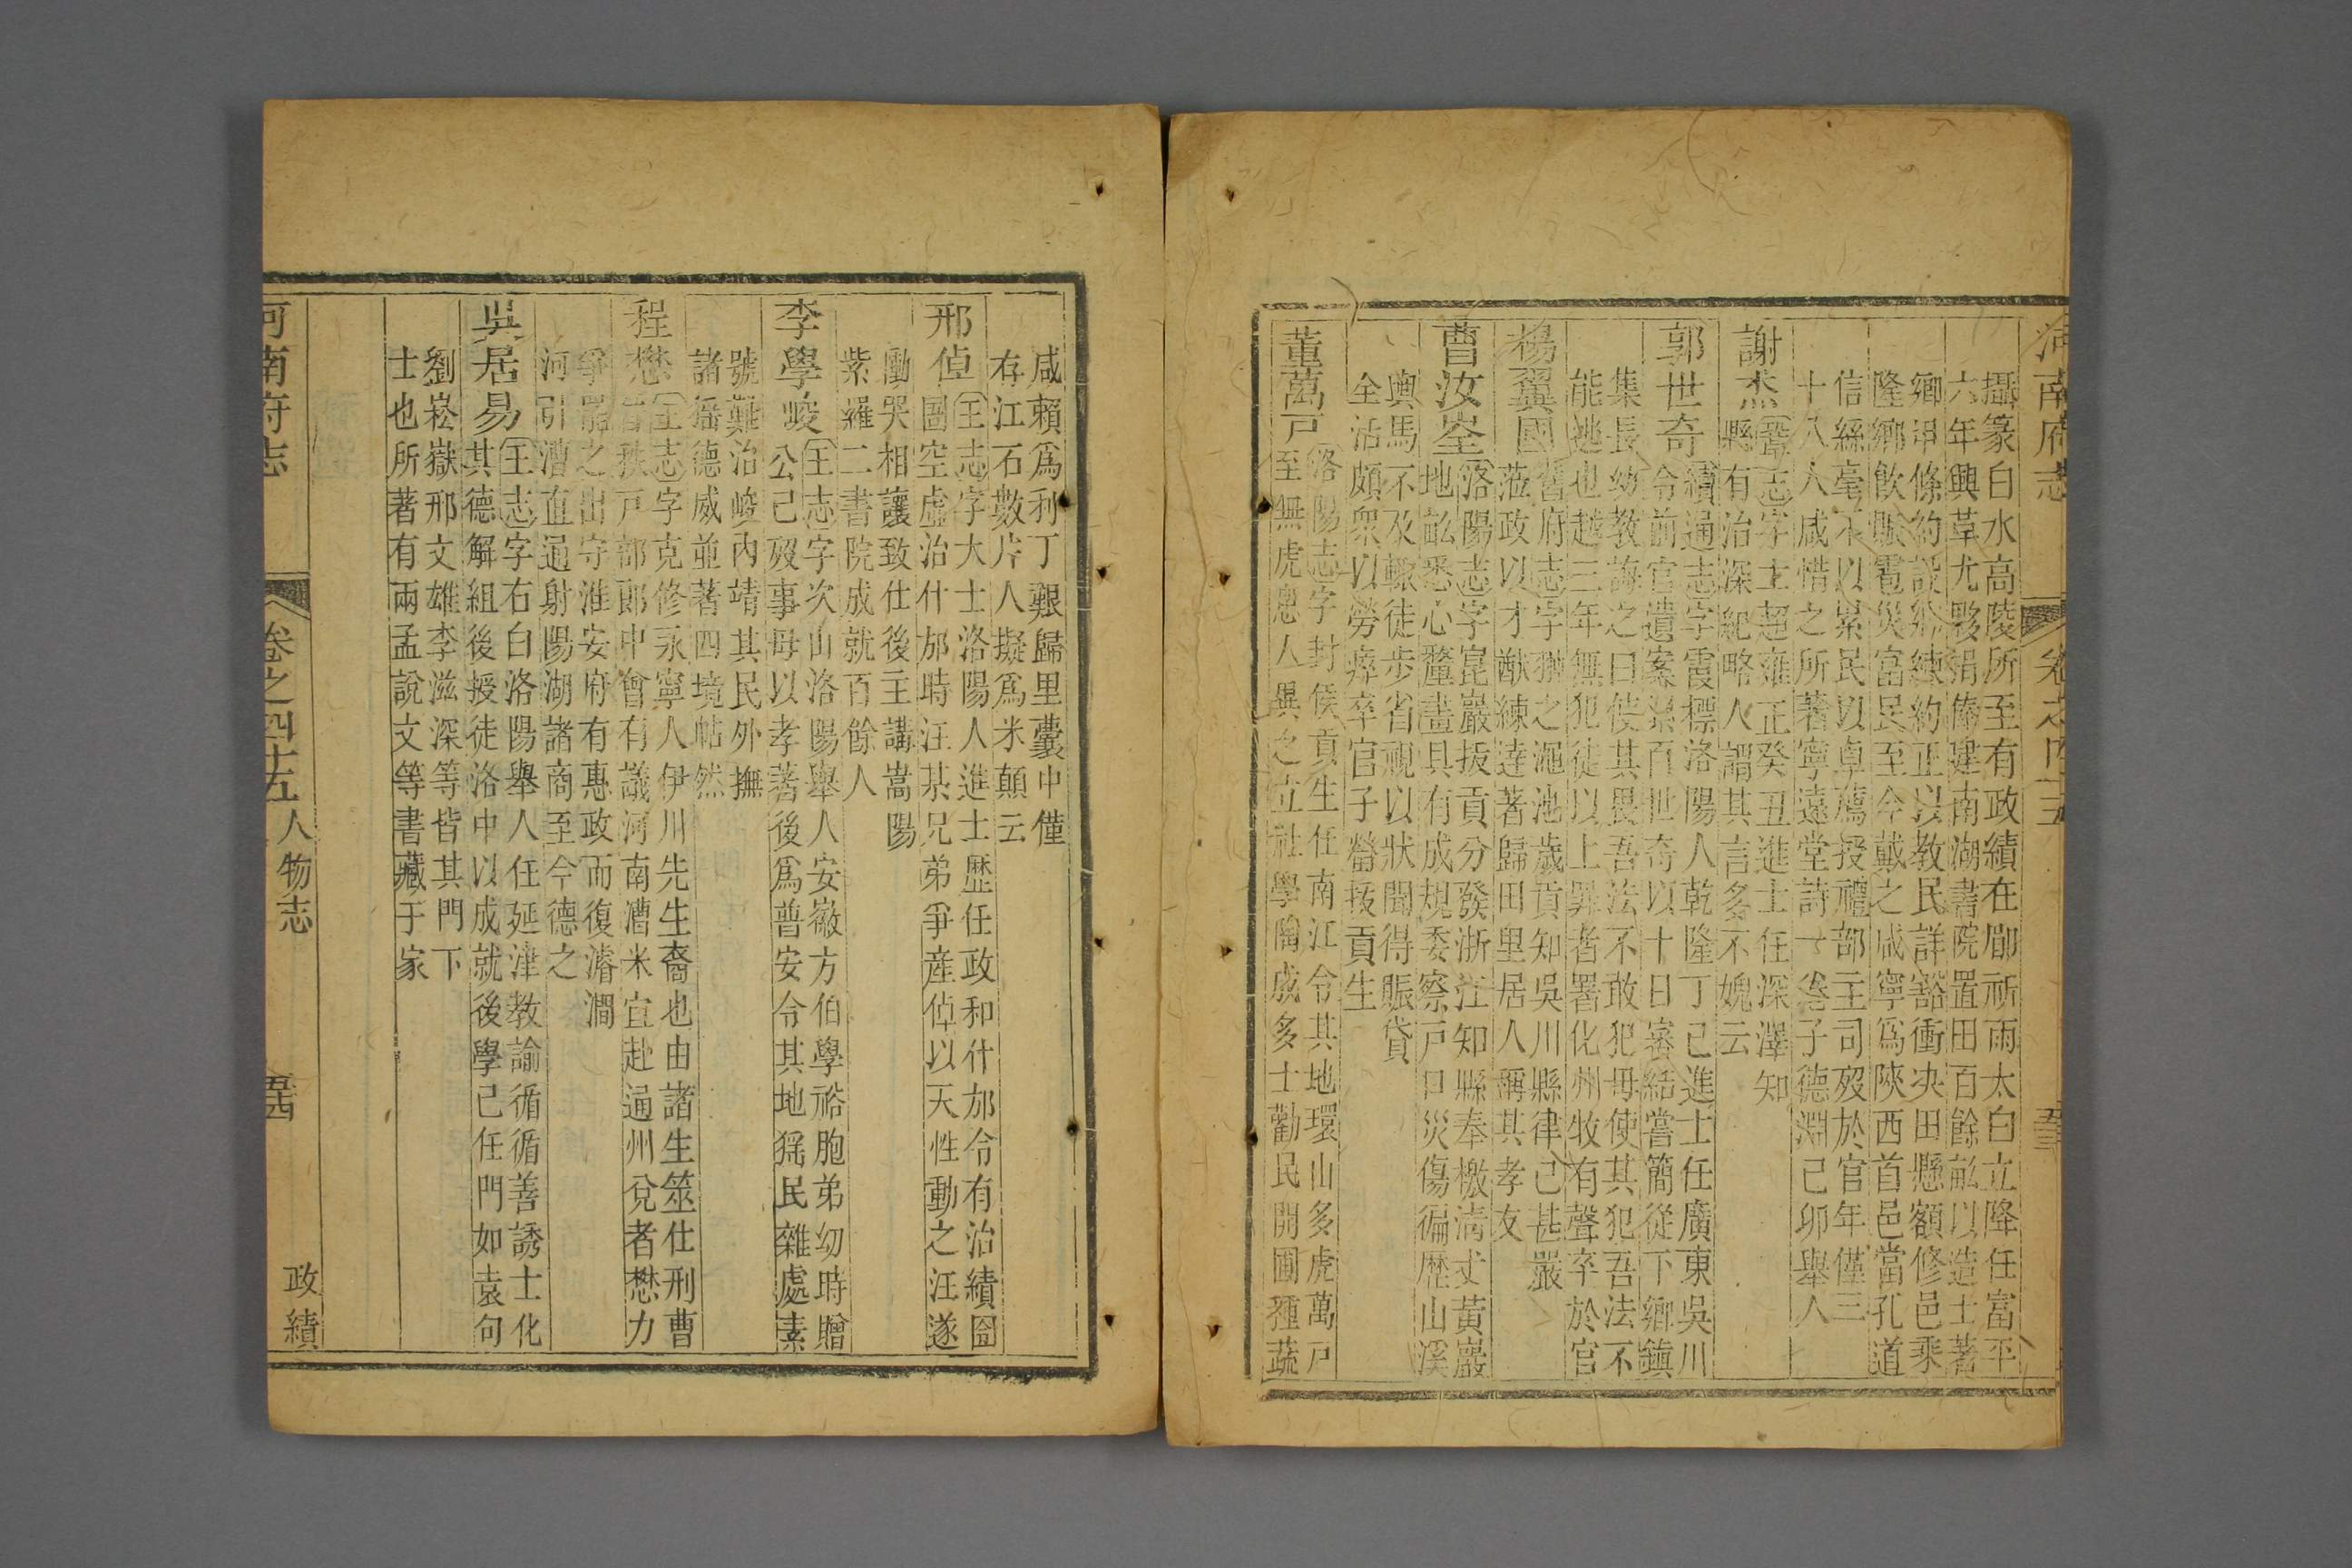 河南府志 卷之四十五 五三
攝篆白水高陵所至有政績在郿祈雨太白立降任富平
六年興革尤夥捐俸建南湖書院置田百餘畝以造士著
鄉
條約設
練約正以教民詳豁衝決田懸額修邑乘
隆鄉飲賑雹災富民至今戴之咸寧爲陝西首邑當孔道
信絲毫不以累民以卓薦授禮部主司歿於官年僅三
十八人咸惜之所著寧遠堂詩一卷子德淵己卯舉人
謝杰
志字士超雍正癸丑進士任深澤知
縣有治深紀略人謂其言多不媿云
郭世奇
續通志字霞標洛陽人乾隆丁巳進士任廣東吳川
令前官遺案累百世奇以十日審結嘗簡從下鄉鎮
集長幼教誨之曰使其畏吾法不敢犯毋使其犯吾法不
能逃也越三年無犯徒以上罪者署化州牧有聲卒於官
楊翼國
舊府志字翔之澠池歲貢知吳川縣律己甚嚴
蒞政以才猷練達著歸田里居人稱其孝友
曹汝崟
洛陽志字崑巖拔貢分發浙江知縣奉檄清丈黃巖
地畝悉心釐畫具有成規委察戶口災傷徧歷山溪
輿馬不及輒徒步省視以狀聞得賑貸
全活頗衆以勞瘁卒官子嶜拔貢生
董萬戸
洛陽志字封侯貢生任南江令其地環山多虎萬戸
至無虎患人異之立社學陶成多士勸民開圃種蔬
咸賴爲利丁艱歸里囊中僅
存江石數片人擬爲米顛云
邢偉
王志字大士洛陽人進士歴任政和什邡令有治績囹
圄空虛治什邡時汪某兄弟爭産倬以天性動之汪遂
慟哭相讓致仕後主講嵩陽
紫羅二書院成就百餘人
李學峻
王志字次山洛陽舉人安徽方伯學裕胞弟幼時贈
公已歿事母以孝著後爲普安令其地猺民雜處素
號難治峻內靖其民外撫
諸猺德威並著四境帖然
程懋
王志字克修永寧人伊川先生裔也由諸生筮仕刑曹
晉秩戸部郎中會有議河南漕米宜赴通州兌者懋力
爭罷之出守淮安府有惠政而復濬澗
河引漕直通射陽湖諸商至今德之
吳居易
王志字右白洛陽舉人任延津教諭循循善誘士化
其德解組後授徒洛中以成就後學己任門如袁句
劉崧嶽邢文雄李滋深等皆其門下
士也所著有兩孟說文等書藏于家
河南府志 卷之四十五 人物志 五四 政績